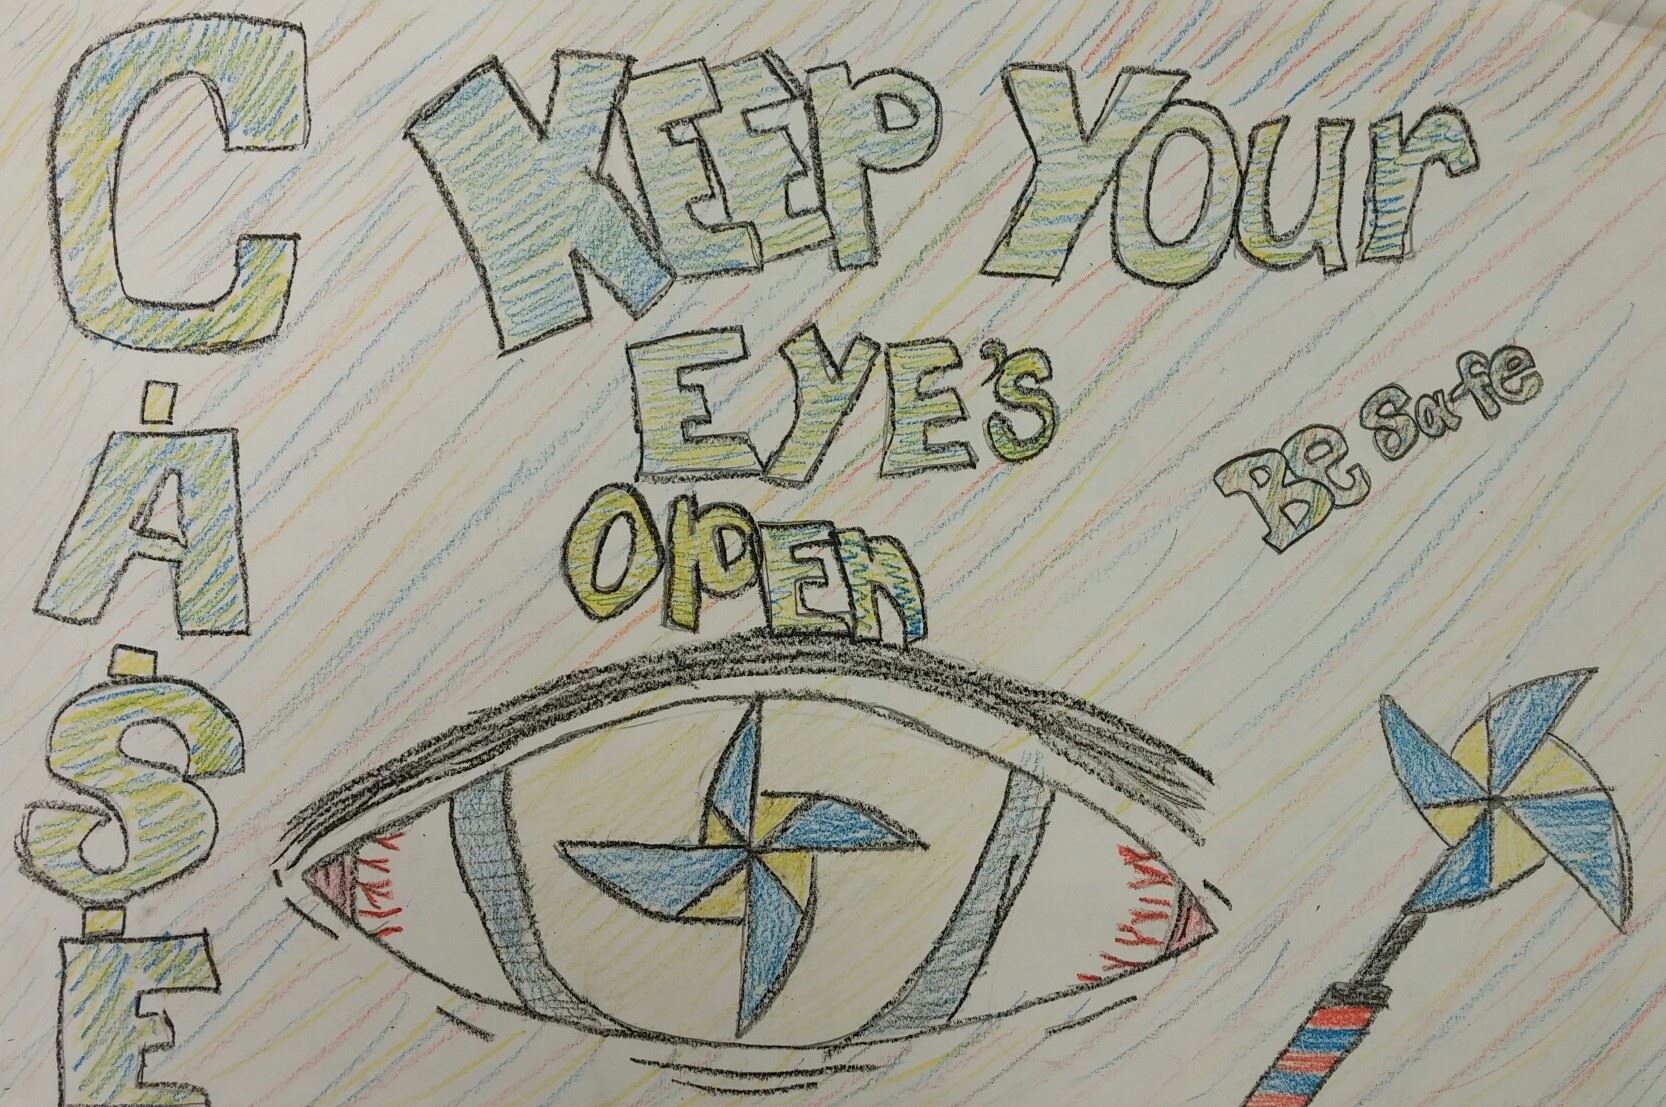 C.A.S.E
KEEP Your
EYE'S
OPEn
BE Safe